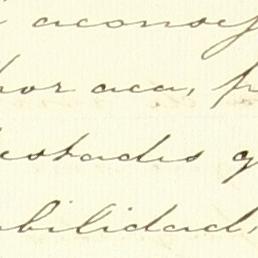 aconsej
por aca, p
estados q
bilidad,